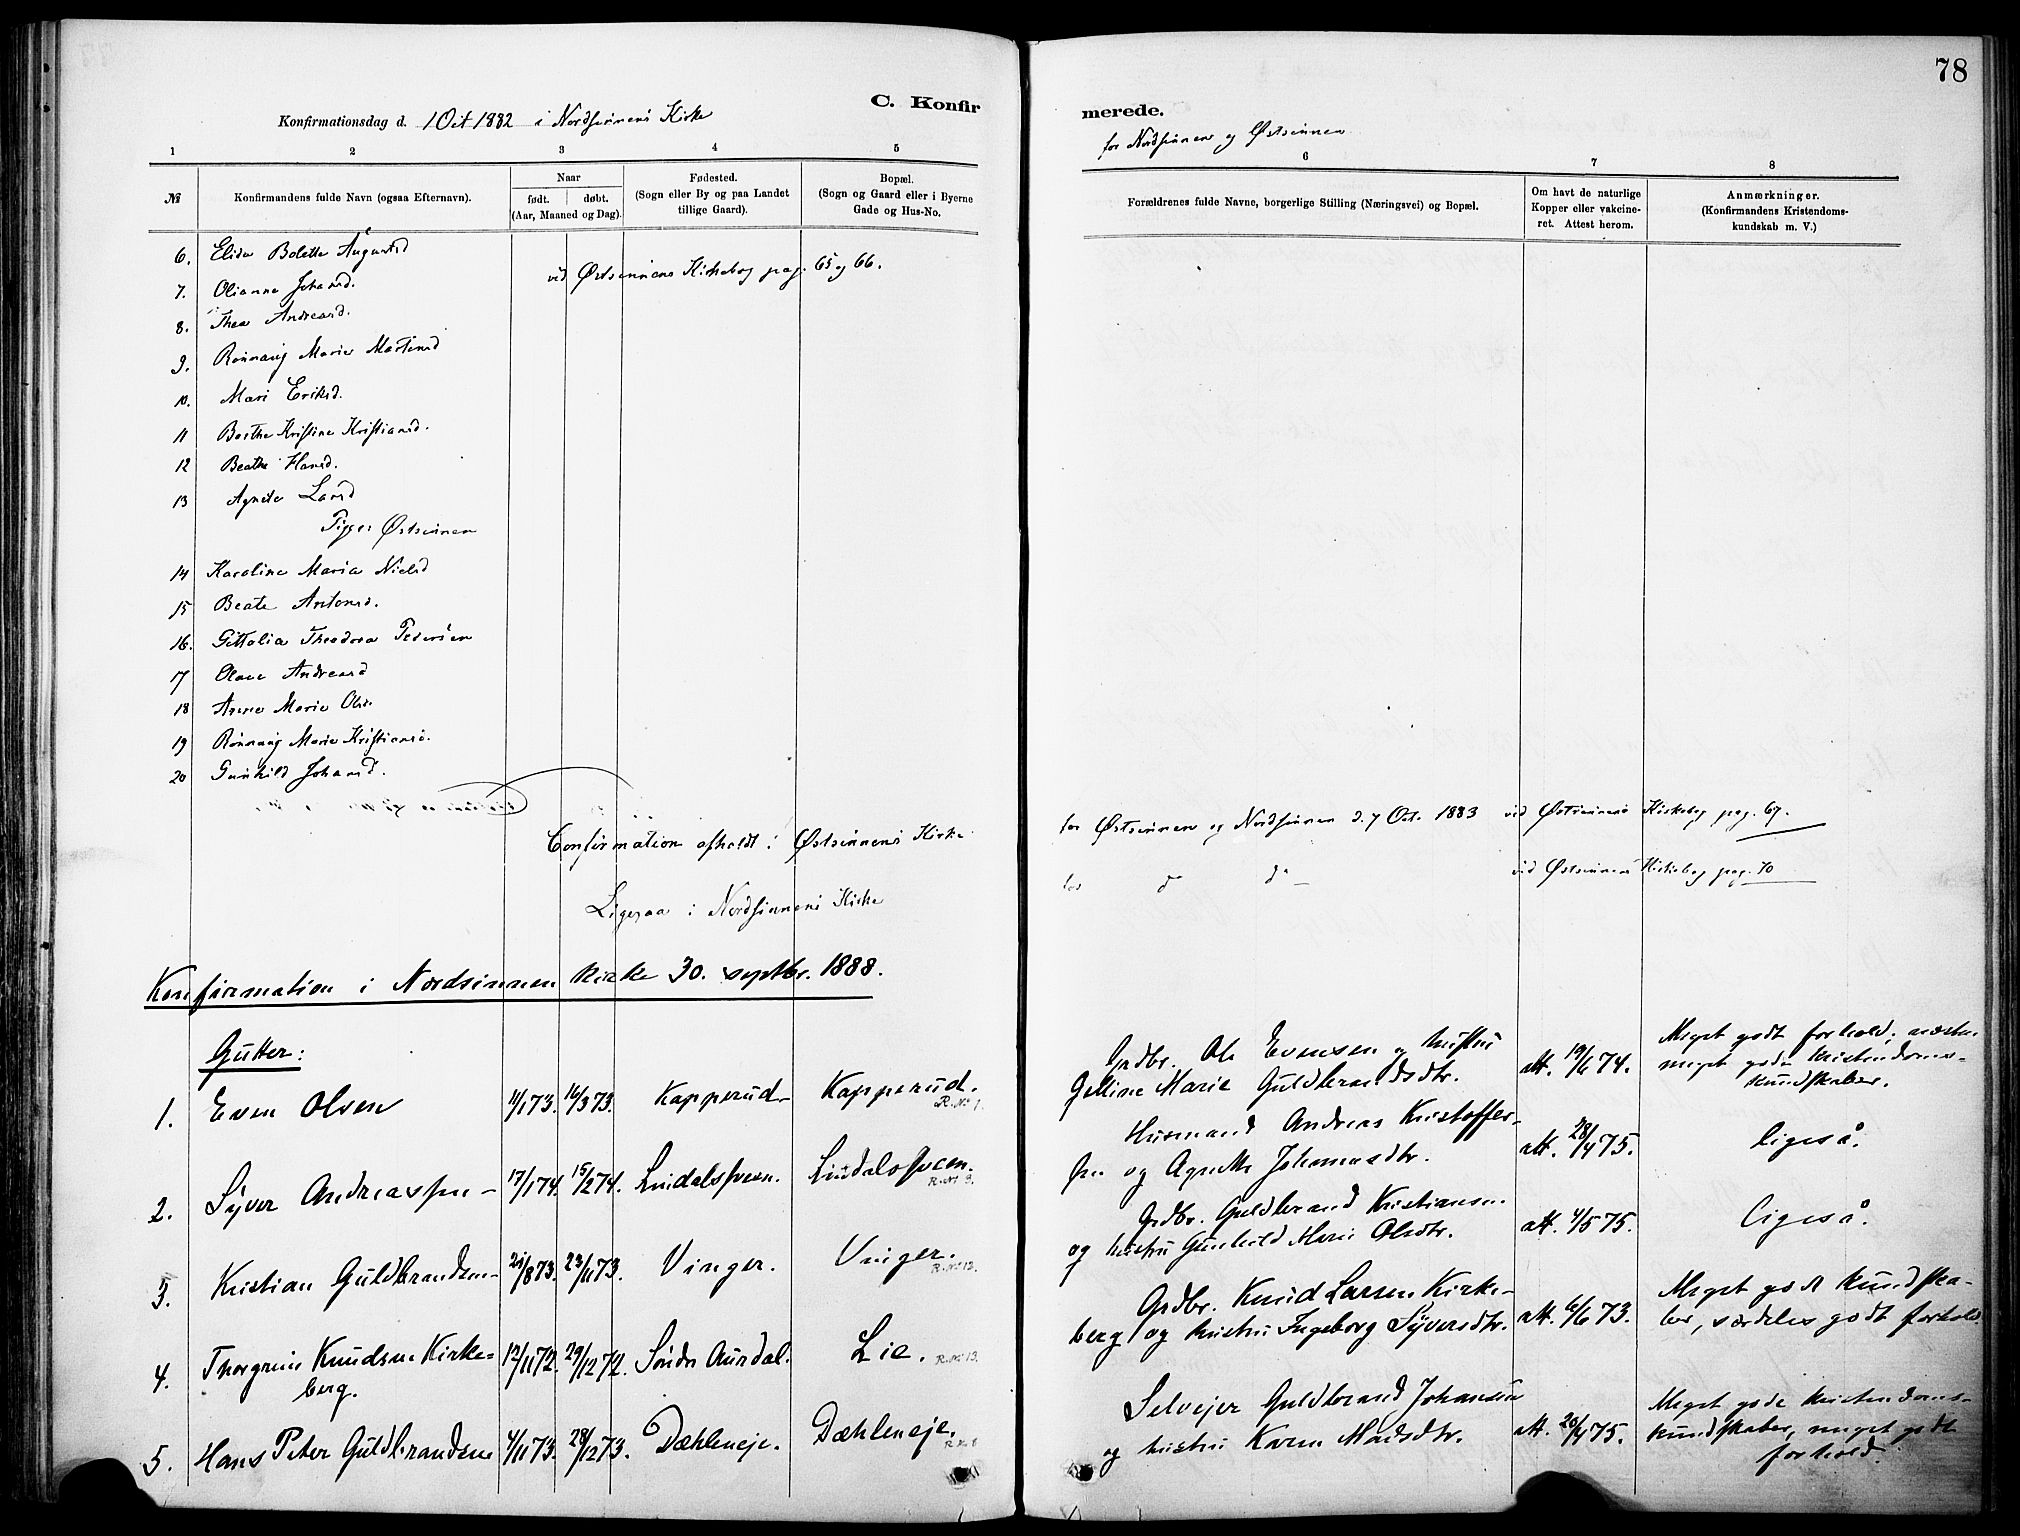 78
C. Konfirmerede.
Konfirmationsdag d. 1 Oct 1882 i Nordsinnens Kirke
for Nordsinnen og Østsinnen
1 2 3 4 5 6 7 8
№
Konfirmandens fulde Navn (ogsaa Efternavn).
Naar
født. døbt.
(Aar, Maaned og Dag).
Fødested.
(Sogn eller By og paa Landet
tillige Gaard).
Bopæl.
(Sogn og Gaard eller i Byerne
Gade og Hus-No.
Forældrenes fulde Navne, borgerlige Stilling (Næringsvei) og Bopæl.
Om havt de naturlige
Kopper eller vakcine-
ret. Attest herom.
Anmærkninger.
(Konfirmandens Kristendoms-
kundskab m. V.)
6. Elida Bolette Augustsd
vid Østsinnens Kirkebog pag. 65 og 66.
7. Olianna Johansd.
8. Thea Andreasd.
9. Rønnaug Marie Martinsd
10. Mari Eriksd.
11 Berthe Kristine Kristiansd.
12 Beathe Hansd.
13 Agnete Larsd
Piger Østsinnen
14 Karoline Maria Nielsd
15 Beate Antonsd.
16. Gittolia Theodora Pedersen
17 Olava Andreasd
18 Anne Marie Olsd.
19 Rønnaug Marie Kristiansd.
20 Gunhild Johansd.
Confirmation afholdt i Østsinnens Kirke for Østsinnen og Nordsinnen d. 7 Oct. 1883 vid Østsinnens Kirkebog pag. 67.
Ligesaa i Nordsinnens Kirke for do do vid Østsinnens Kirkebog pag. 70
Konfirmation i Nordsinnen kirke 30. septbr. 1888.
Gutter:
1. Even Olsen 11/1 73. 16/3 73. Kapperud Kapperud. R.No 1.
Grdbr. Ole Evensen og hustru
Gelline Marie Guldbrandsdtr.
att. 19/6 74.
Meget godt forhold; næsten
meget gode kristendoms-
kundskaber.
2. Syver Andreassen 17/1 74. 15/2 74. Lindalssveen. Lindalssveen. R.No 3.
Husmand Andreas Kristoffer-
sen og Agnethe Johannesdtr.
att. 28/4 75.
ligeså.
3. Kristian Guldbrandsen 21/8 73. 23/11 73. Vinger. Vinger. R.No 12.
Grdbr. Guldbrand Kristiansen
og hustru Gunhild Marie Olsdtr.
att. 4/5 75.
Ligeså.
4. Thorgrim Knudsen Kirke-
berg. 12/11 72. 29/12 72. Søndre Aurdal. Lie. R.No 13.
Grdbr. Knud Larsen Kirke-
berg og hustru Ingeborg Syversdtr.
att. 6/6 73.
Meget godt kundska-
ber, særdeles godt forhold.
5. Hans Peter Guldbrandsen 4/11 73. 28/12 73. Dæhleneje. Dæhleneje. R.No 8
Selvejer Guldbrand Johansen
og hustru Karen Madsdtr.
att. 20/4 75.
Meget gode kristendoms-
kundskaber, meget godt
forhold.